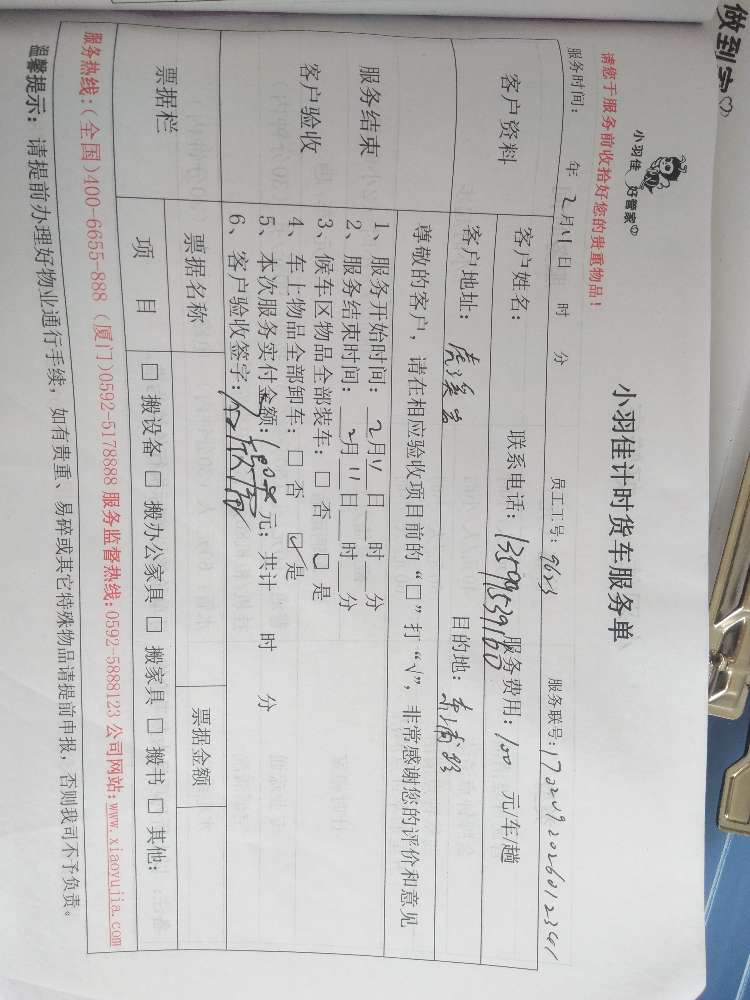 做到
小羽佳 好管家
小羽佳计时货车服务单
请您于服务前收拾好您的贵重物品！
服务时间： 年 2月11日 时 分 员工工号：9623 服务联号：
客户资料
客户姓名： 联系电话：13599539160 服务费用：100 元/车/趟
客户地址：虎溪 目的地：东浦路
服务结束
客户验收
尊敬的客户，请在相应验收项目前的“□”打“√”，非常感谢您的评价和意见
1、服务开始时间：2月11日 时 分
2、服务结束时间：2月11日 时 分
3、候车区物品全部装车：□ 否 □ 是
4、车上物品全部卸车：□ 否 ☑ 是
5、本次服务实付金额： 元；共计 时 分
6、客户验收签字：
票据栏
票据名称 票据金额
项 目 □ 搬设备 □ 搬办公家具 □ 搬家具 □ 搬书 □ 其他：
服务热线：(全国)400-6655-888 (厦门)0592-5178888 服务监督热线：0592-5888123 公司网站：www.xiaoyujia.com
温馨提示：请提前办理好物业通行手续，如有贵重、易碎或其它特殊物品请提前申报，否则我司不予负责。